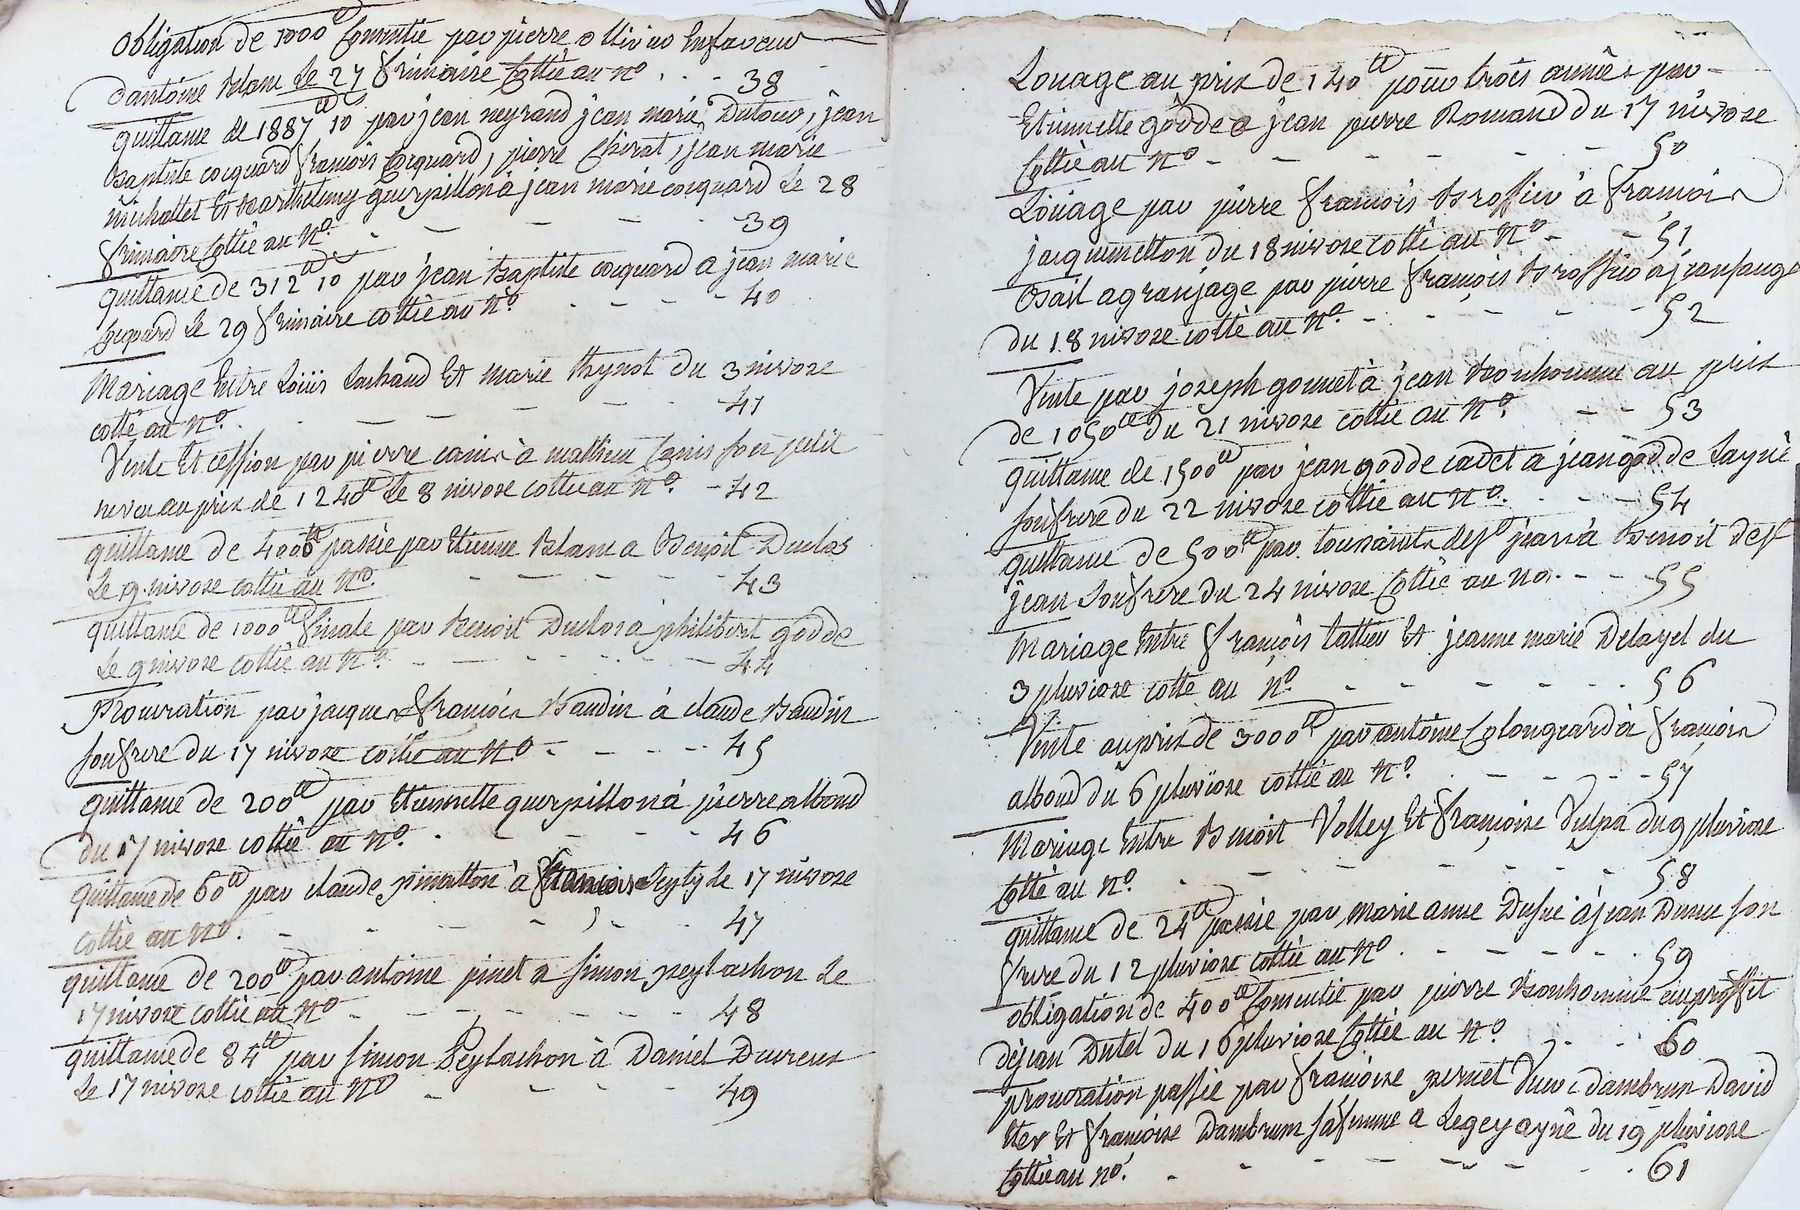 obligation de 1000ᵗᵗ Consentie par pierre ollivier Enfaveur
dantoine blanc Le 27 frimaire Cottée au nº . . . 38
quittance de 1887ᵗᵗ 10 par jean neyrand jean marie Dutour, jean
Baptiste cocquard françois Cocquard, pierre Chirat, jean marie
michallet Et Barthelmy guerpillon à jean marie cocquard Le 28
frimaire Cottée au Nº. - - - - 39
quittance de 312ᵗᵗ 10 par jean Baptiste cocquard a jean marie
Cocquard Le 29 frimaire cottée au Nº. - - - - 40
Mariage Entre Louis Et marie du 3 nivose
cotté au Nº. - - - - 41
Vente Et cession par pierre canis à mathieu Canis son petit
neveu au prix de 1240ᵗᵗ Le 8 nivose cottée au Nº. - 42
quittance de 4000ᵗᵗ passée par Etienne Blanc a Benoit Duclos
Le 9 nivose cottée au Nº. - - - - 43
quittance de 1000ᵗᵗ finale par Benoit Duclos à philibert godde
Le 9 nivose cottée au Nº. - - - - 44
Procuration par jacques françois Baudin à claude Baudin
son frere du 17 nivose cottée au Nº - - - - 45
quittance de 200ᵗᵗ par Etiennette guerpillon à pierre alboud
du 17 nivose cottée au Nº. - - - - 46
quittance de 60ᵗᵗ par claude pinatton à françois Le 17 nivose
cottée au Nº. - - - - 47
quittance de 200ᵗᵗ par antoine pinet a simon peylachon Le
17 nivose cottée au Nº - - - - 48
quittance de 84ᵗᵗ par simon Peylachon à Daniel Duvreux
Le 17 nivose cottée au Nº - - - - 49
Louage au prix de 140ᵗᵗ pour trois années par
Etiennette godde a jean pierre Romand du 17 nivose
Cottée au Nº - - - - 50
Louage par pierre françois Brossier à françois
jacquemetton du 18 nivose cotté au Nº - - 51
Bail a granjage par pierre françois Brossier à jean
du 18 nivose cotté au Nº. - - - - 52
Vente par joseph gonnet à jean Bonhomme au prix
de 1050ᵗᵗ du 21 nivose cottée au Nº. - - 53
quittance de 1500ᵗᵗ par jean godde cadet a jean godde Layné
son frere du 22 nivose cottée au Nº. - - - 54
quittance de 500ᵗᵗ par toussaint à Benoit
jean son frere du 24 nivose Cottée au no. - - - 55
Mariage Entre françois Et jeanne marie Delayel du
3 pluviose cotté au nº. - - - - 56
Vente au prix de 3000ᵗᵗ par antoine Colongeard à françois
alboud du 6 pluviose cottée au Nº. - - - - 57
Mariage Entre Benoit Volley Et françoise Dulpa du 9 pluviose
Cotté au Nº. - - - - 58
quittance de 24ᵗᵗ passée par marie anne à jean son
frere du 12 pluviose cottée au Nº - - - - 59
obligation de 400ᵗᵗ Consentie par pierre Bonhomme au proffit
de jean Dutel du 16 pluviose Cottée au Nº - - 60
procuration passée par françoise pernet Veuve Dambrun David
Et françoise Dambrun sa femme a Legey ayné du 19 pluviose
Cottée au nº. - - - - 61